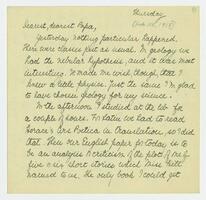 Thursday
Dearest, dearest Papa,
Yesterday nothing particular happened.
There were classes just as usual. In geology we
had the nebular hypothesis, and it was most
interesting. It made me wish, though, that I
knew a little physics. Just the same I'm glad
to have chosen geology for my science.
In the afternoon I studied at the lib for
a couple of hours. For Latin we had to read
Horace's Ars Poetica in translation, so I did
that. Then our English paper for today is to
be an analysis & criticism of the plot of one of
five or six short stories which Miss
named to us. The only book I could get